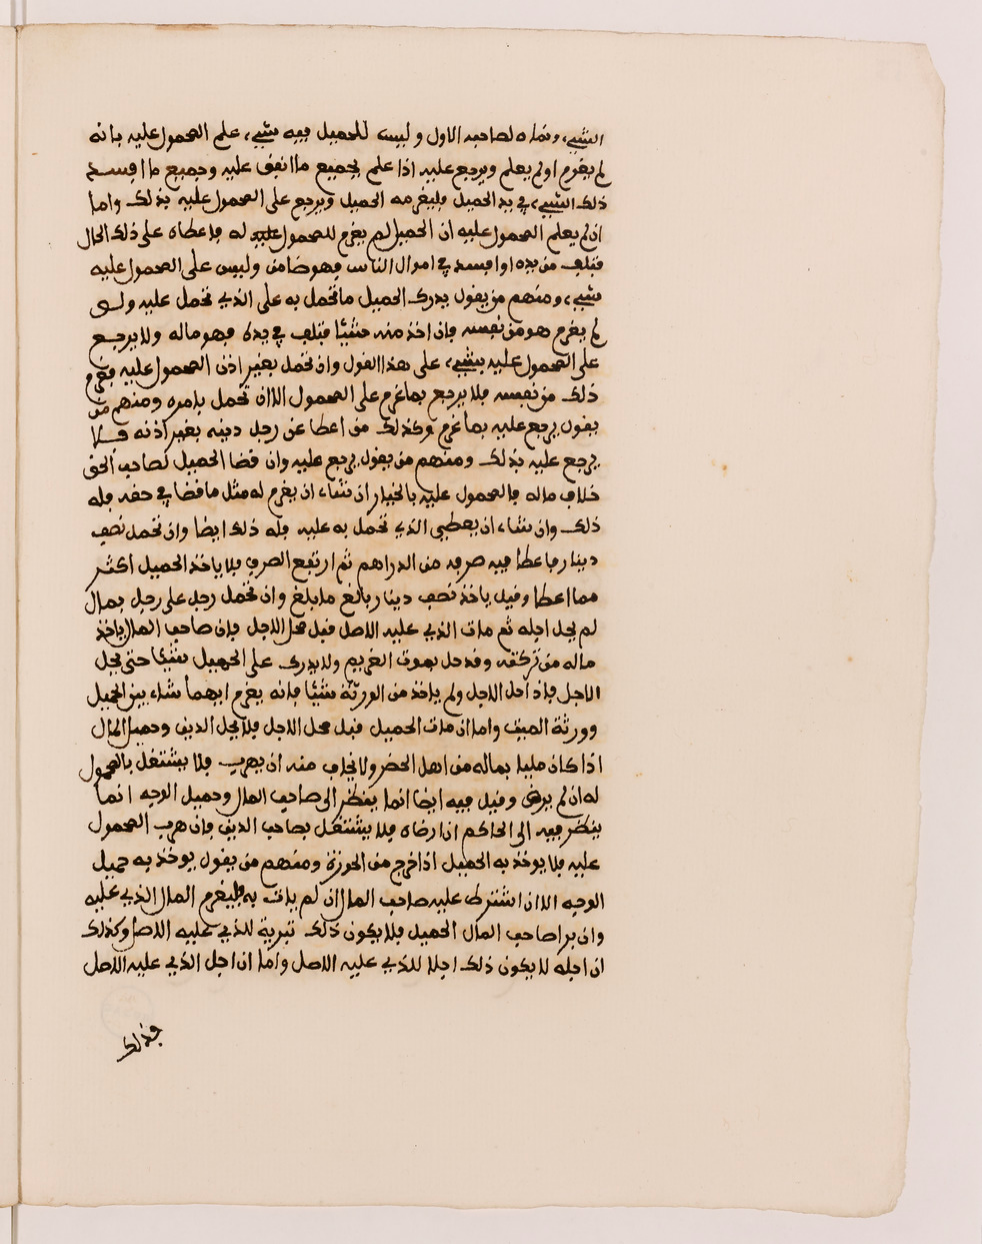 الشيء ونماه لصاحبه الاول وليس للحميل فيه شيء علم المحمول عليه بانه
لم يغرم او لم يعلم ويرجع عليه اذا علم بجميع ما انفق عليه وجميع ما افسد
ذلك الشيء في يد الحميل فليغرمه الحميل ويرجع على المحمول عليه بذلك واما
ان لم يعلم المحمول عليه ان الحميل لم يغرم للمحمول له فاعطاه على ذلك الحال
فتلف من يده او افسد في اموال الناس فهو ضامن وليس على المحمول عليه
شيء ومنهم من يقول يدرك الحميل ما تحمل به على الذي تحمل عليه ولو
لم يغرم هو من نفسه فان اخذ منه شيئا فتلف في يده فهو ماله ولا يرجع
على المحمول عليه بشيء على هذا القول وان تحمل بغير اذن المحمول عليه فغرم
ذلك من نفسه فلا يرجع بما غرم على المحمول الا ان تحمل بامره ومنهم من
يقول يرجع عليه بما غرم وكذلك من اعطا عن رجل دينه بغير اذنه فلا
يرجع عليه بذلك ومنهم من يقول يرجع عليه وان قضا الحميل لصاحب الحق
خلاف ماله فالمحمول عليه بالخيار ان شاء ان يغرم له مثل ما قضا في حقه فله
ذلك وان شاء ان يعطي الذي تحمل به عليه فله ذلك ايضا وان تحمل نصف
دينار فاعطا فيه صرفه من الدراهم ثم ارتفع الصرف فلا ياخذ الحميل اكثر
مما اعطا وقيل ياخذ نصف دينار بالغ ما بلغ وان تحمل رجل على رجل بمال
لم يحل اجله ثم مات الذي عليه الاصل قبل محل الاجل فان صاحب المال ياخذ
ماله من تركته وقد حل بموت الغريم ولا يدرك على الحميل شيئا حتى يحل
الاجل فاذا حل الاجل ولم ياخذ من الورثة شيئا فانه يغرم ايهما شاء بين الحميل
وورثة الميت واما ان مات الحميل قبل محل الاجل فلا يحل الدين وحميل المال
اذا كان مليا بماله من اهل الحضر ولا يخاف منه ان يهرب فلا يشتغل بالمحمول
له ان لم يرضى وقيل فيه ايضا انما ينظر الى صاحب المال وحميل الوجه انما
ينظر فيه الى الحاكم اذا رضاه فلا يشتغل بصاحب الدين فان هرب المحمول
عليه فلا يوخذ به الحميل اذا خرج من الحوزة ومنهم من يقول يوخذ به حميل
الوجه الا ان اشترط عليه صاحب المال ان لم يات به فليغرم المال الذي عليه
وان برا صاحب المال الحميل فلا يكون ذلك تبرية للذي عليه الاصل وكذلك
ان اجله لا يكون ذلك اجلا للذي عليه الاصل واما ان اجل الذي عليه الاصل
فذلك